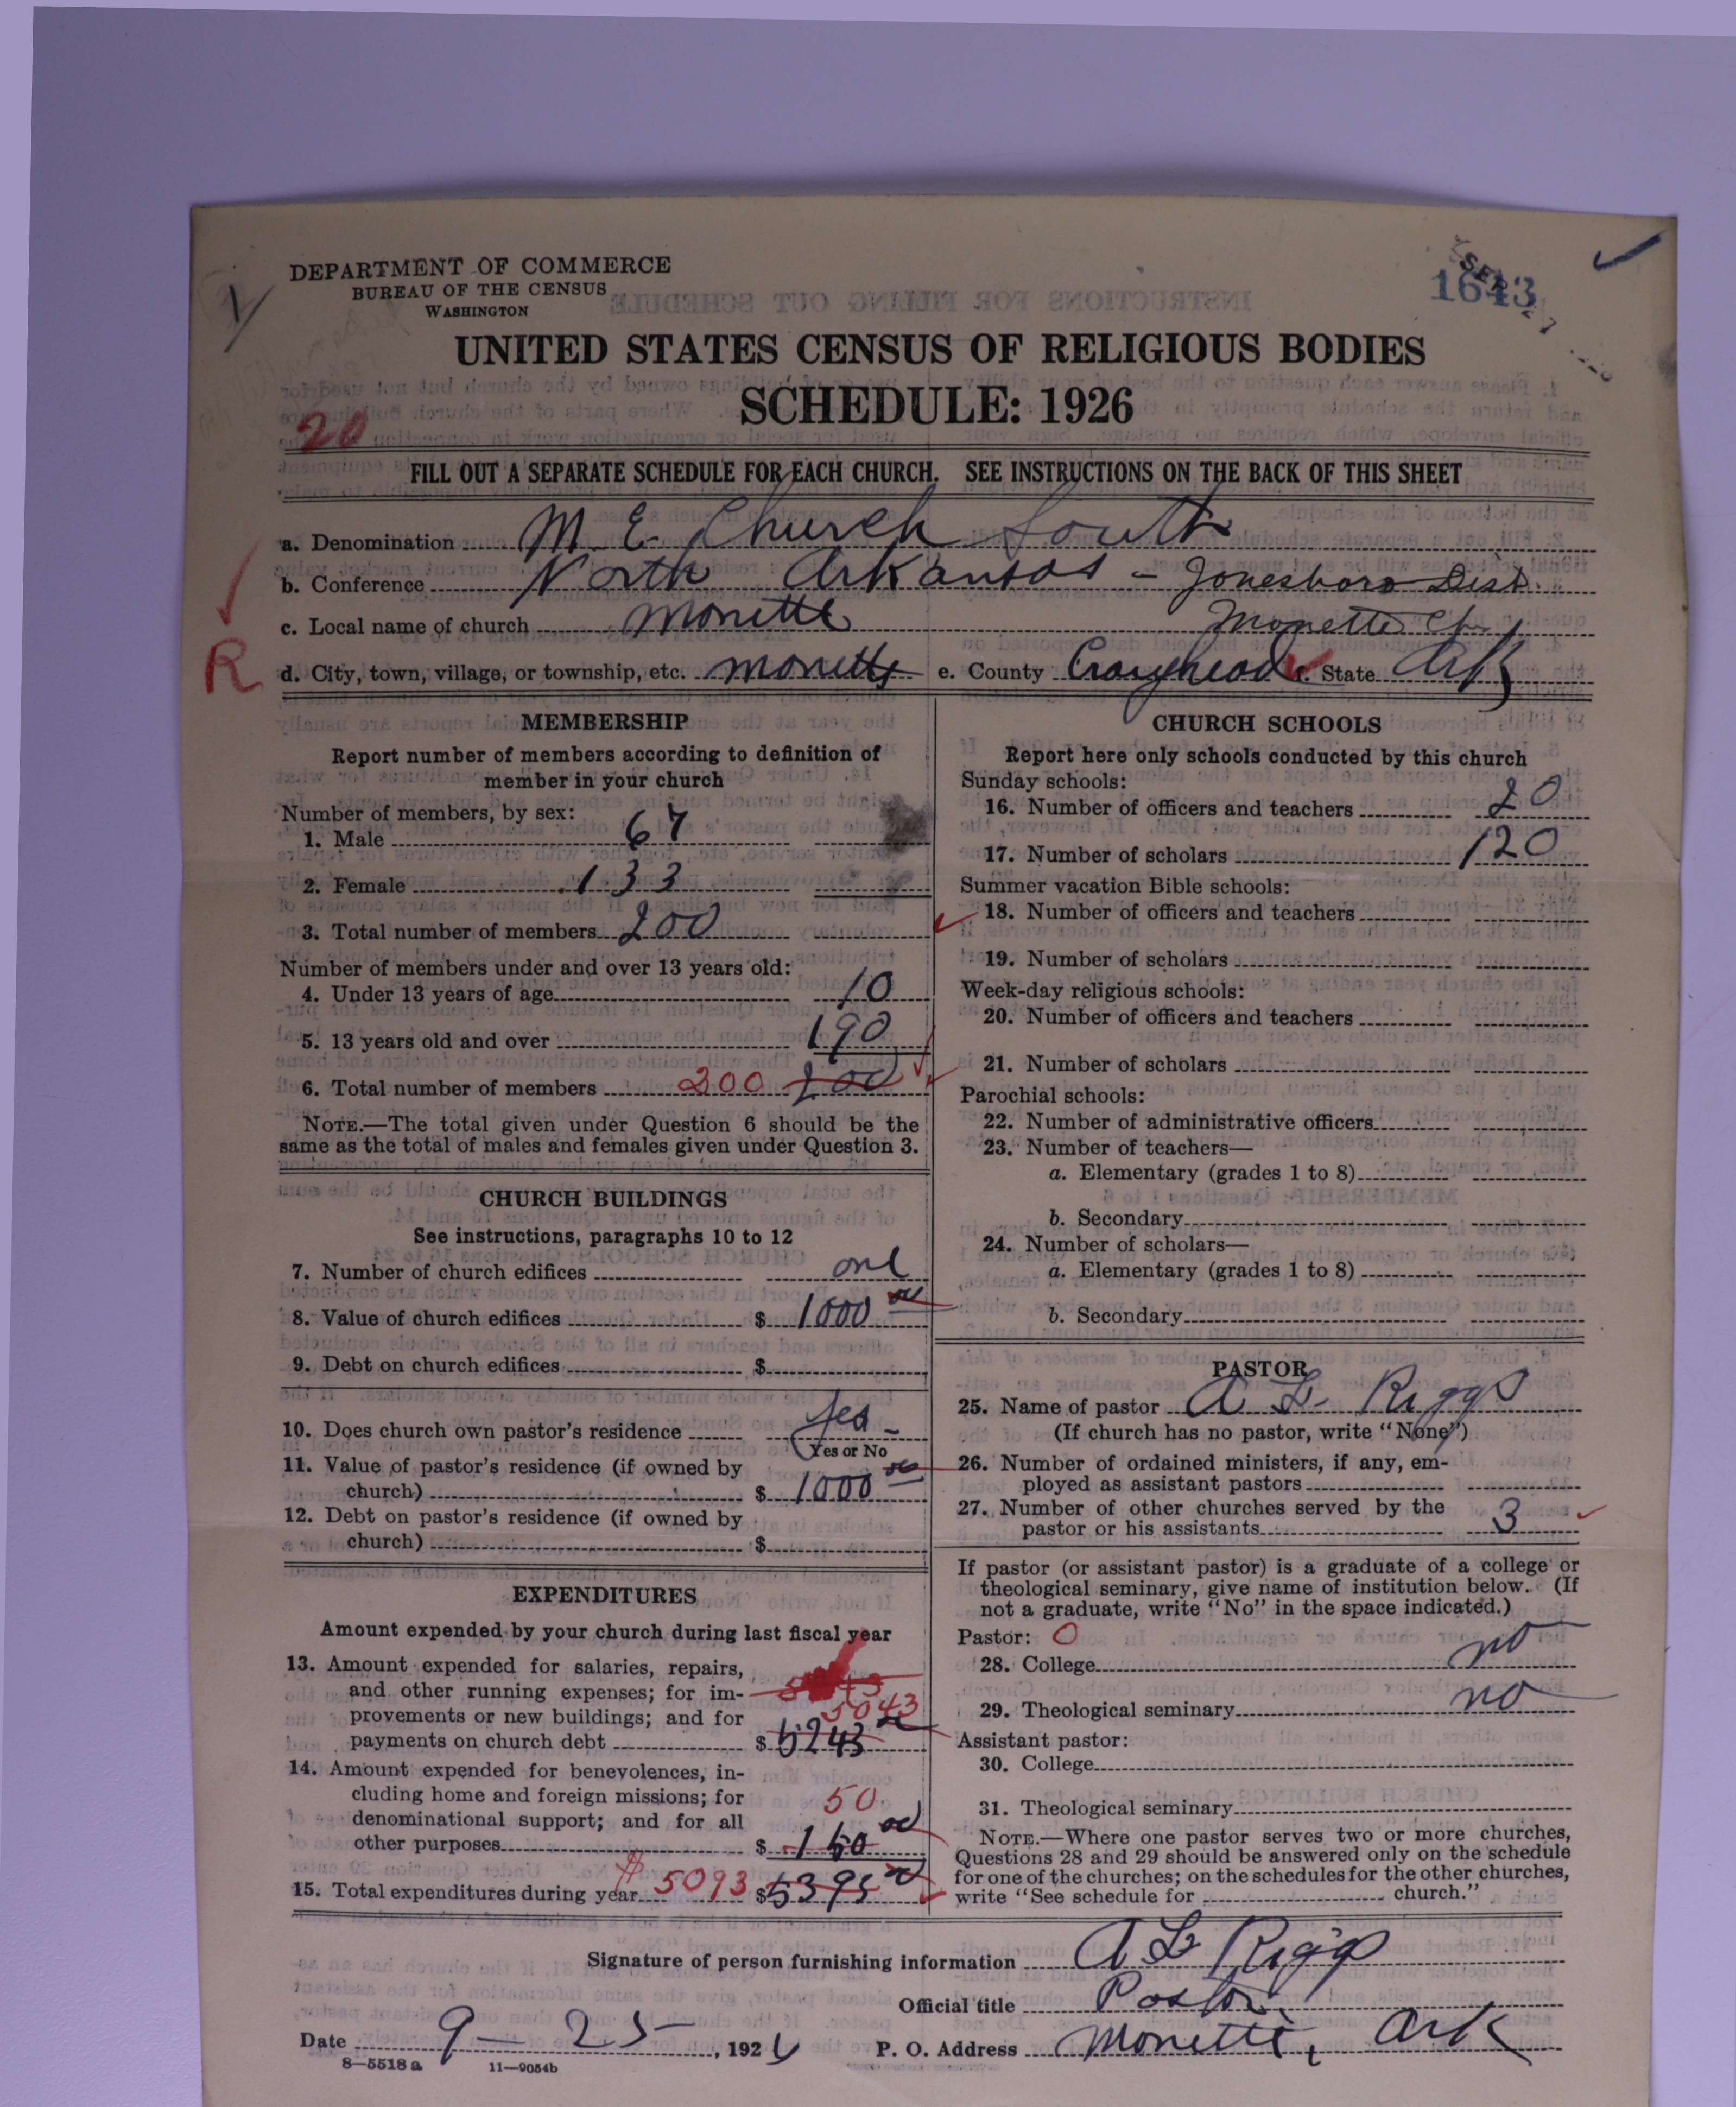 DEPARTMENT OF COMMERCE
BUREAU OF THE CENSUS
WASHINGTON
1643
UNITED STATES CENSUS OF RELIGIOUS BODIES
SCHEDULE: 1926
20
FILL OUT A SEPARATE SCHEDULE FOR EACH CHURCH. SEE INSTRUCTIONS ON THE BACK OF THIS SHEET
a. Denomination M. E. Church South
b. Conference North Arkansas - Jonesboro Dist.
c. Local name of church Monette Monette Ch.
R
d. City, town, village, or township, etc. Monette e. County Craighead f. State Ark
MEMBERSHIP
Report number of members according to definition of
member in your church
Number of members, by sex:
1. Male 67
2. Female 133
3. Total number of members 200
Number of members under and over 13 years old:
4. Under 13 years of age 10
5. 13 years old and over 190
6. Total number of members 200 200
NOTE.—The total given under Question 6 should be the
same as the total of males and females given under Question 3.
CHURCH BUILDINGS
See instructions, paragraphs 10 to 12
7. Number of church edifices one
8. Value of church edifices $ 1000 00
9. Debt on church edifices $
10. Does church own pastor's residence Yes
Yes or No
11. Value of pastor's residence (if owned by
church) $ 1000 00
12. Debt on pastor's residence (if owned by
church) $
EXPENDITURES
Amount expended by your church during last fiscal year
13. Amount expended for salaries, repairs,
and other running expenses; for im-
provements or new buildings; and for 5043
payments on church debt $ 5243
14. Amount expended for benevolences, in-
cluding home and foreign missions; for 50
denominational support; and for all
other purposes $ 150 00
15. Total expenditures during year $ 5093 $ 5393
CHURCH SCHOOLS
Report here only schools conducted by this church
Sunday schools:
16. Number of officers and teachers 20
17. Number of scholars 120
Summer vacation Bible schools:
18. Number of officers and teachers
19. Number of scholars
Week-day religious schools:
20. Number of officers and teachers
21. Number of scholars
Parochial schools:
22. Number of administrative officers
23. Number of teachers—
a. Elementary (grades 1 to 8)
b. Secondary
24. Number of scholars—
a. Elementary (grades 1 to 8)
b. Secondary
PASTOR
25. Name of pastor A L Riggs
(If church has no pastor, write "None")
26. Number of ordained ministers, if any, em-
ployed as assistant pastors
27. Number of other churches served by the
pastor or his assistants 3
If pastor (or assistant pastor) is a graduate of a college or
theological seminary, give name of institution below. (If
not a graduate, write "No" in the space indicated.)
Pastor: 0
28. College no
29. Theological seminary no
Assistant pastor:
30. College
31. Theological seminary
NOTE.—Where one pastor serves two or more churches,
Questions 28 and 29 should be answered only on the schedule
for one of the churches; on the schedules for the other churches,
write "See schedule for church."
Signature of person furnishing information A L Riggs
Official title Pastor
Date 9 - 25 -, 1926 P. O. Address Monette, Ark
8—5518 a 11—9054b